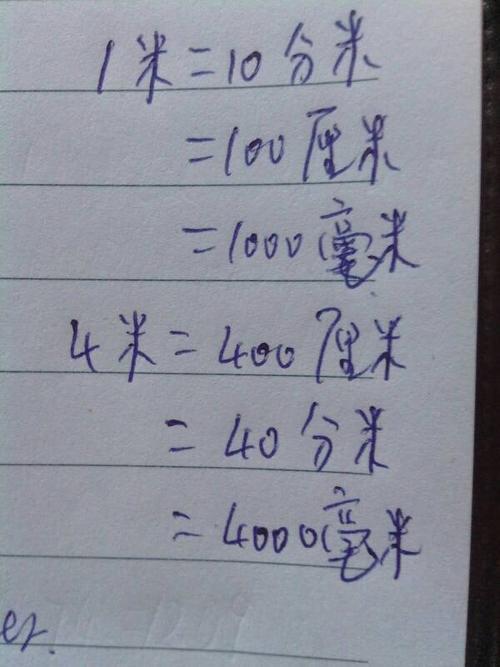 1米=10分米
=100厘米
=1000毫米
4米=400厘米
=40分米
=4000毫米
er.